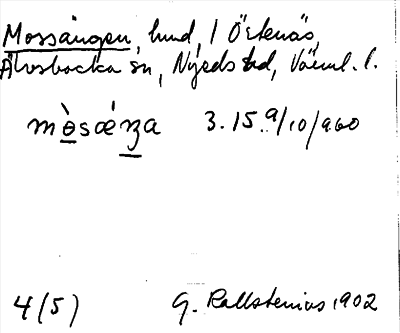 Mossängen, hmd, i Östenäs,
Älvsbacka sn, Nyeds hd, Värml. l.
mò̱sǽŋ̱a 3.15 9/10 1960
4(5) G. Kallstenius 1902